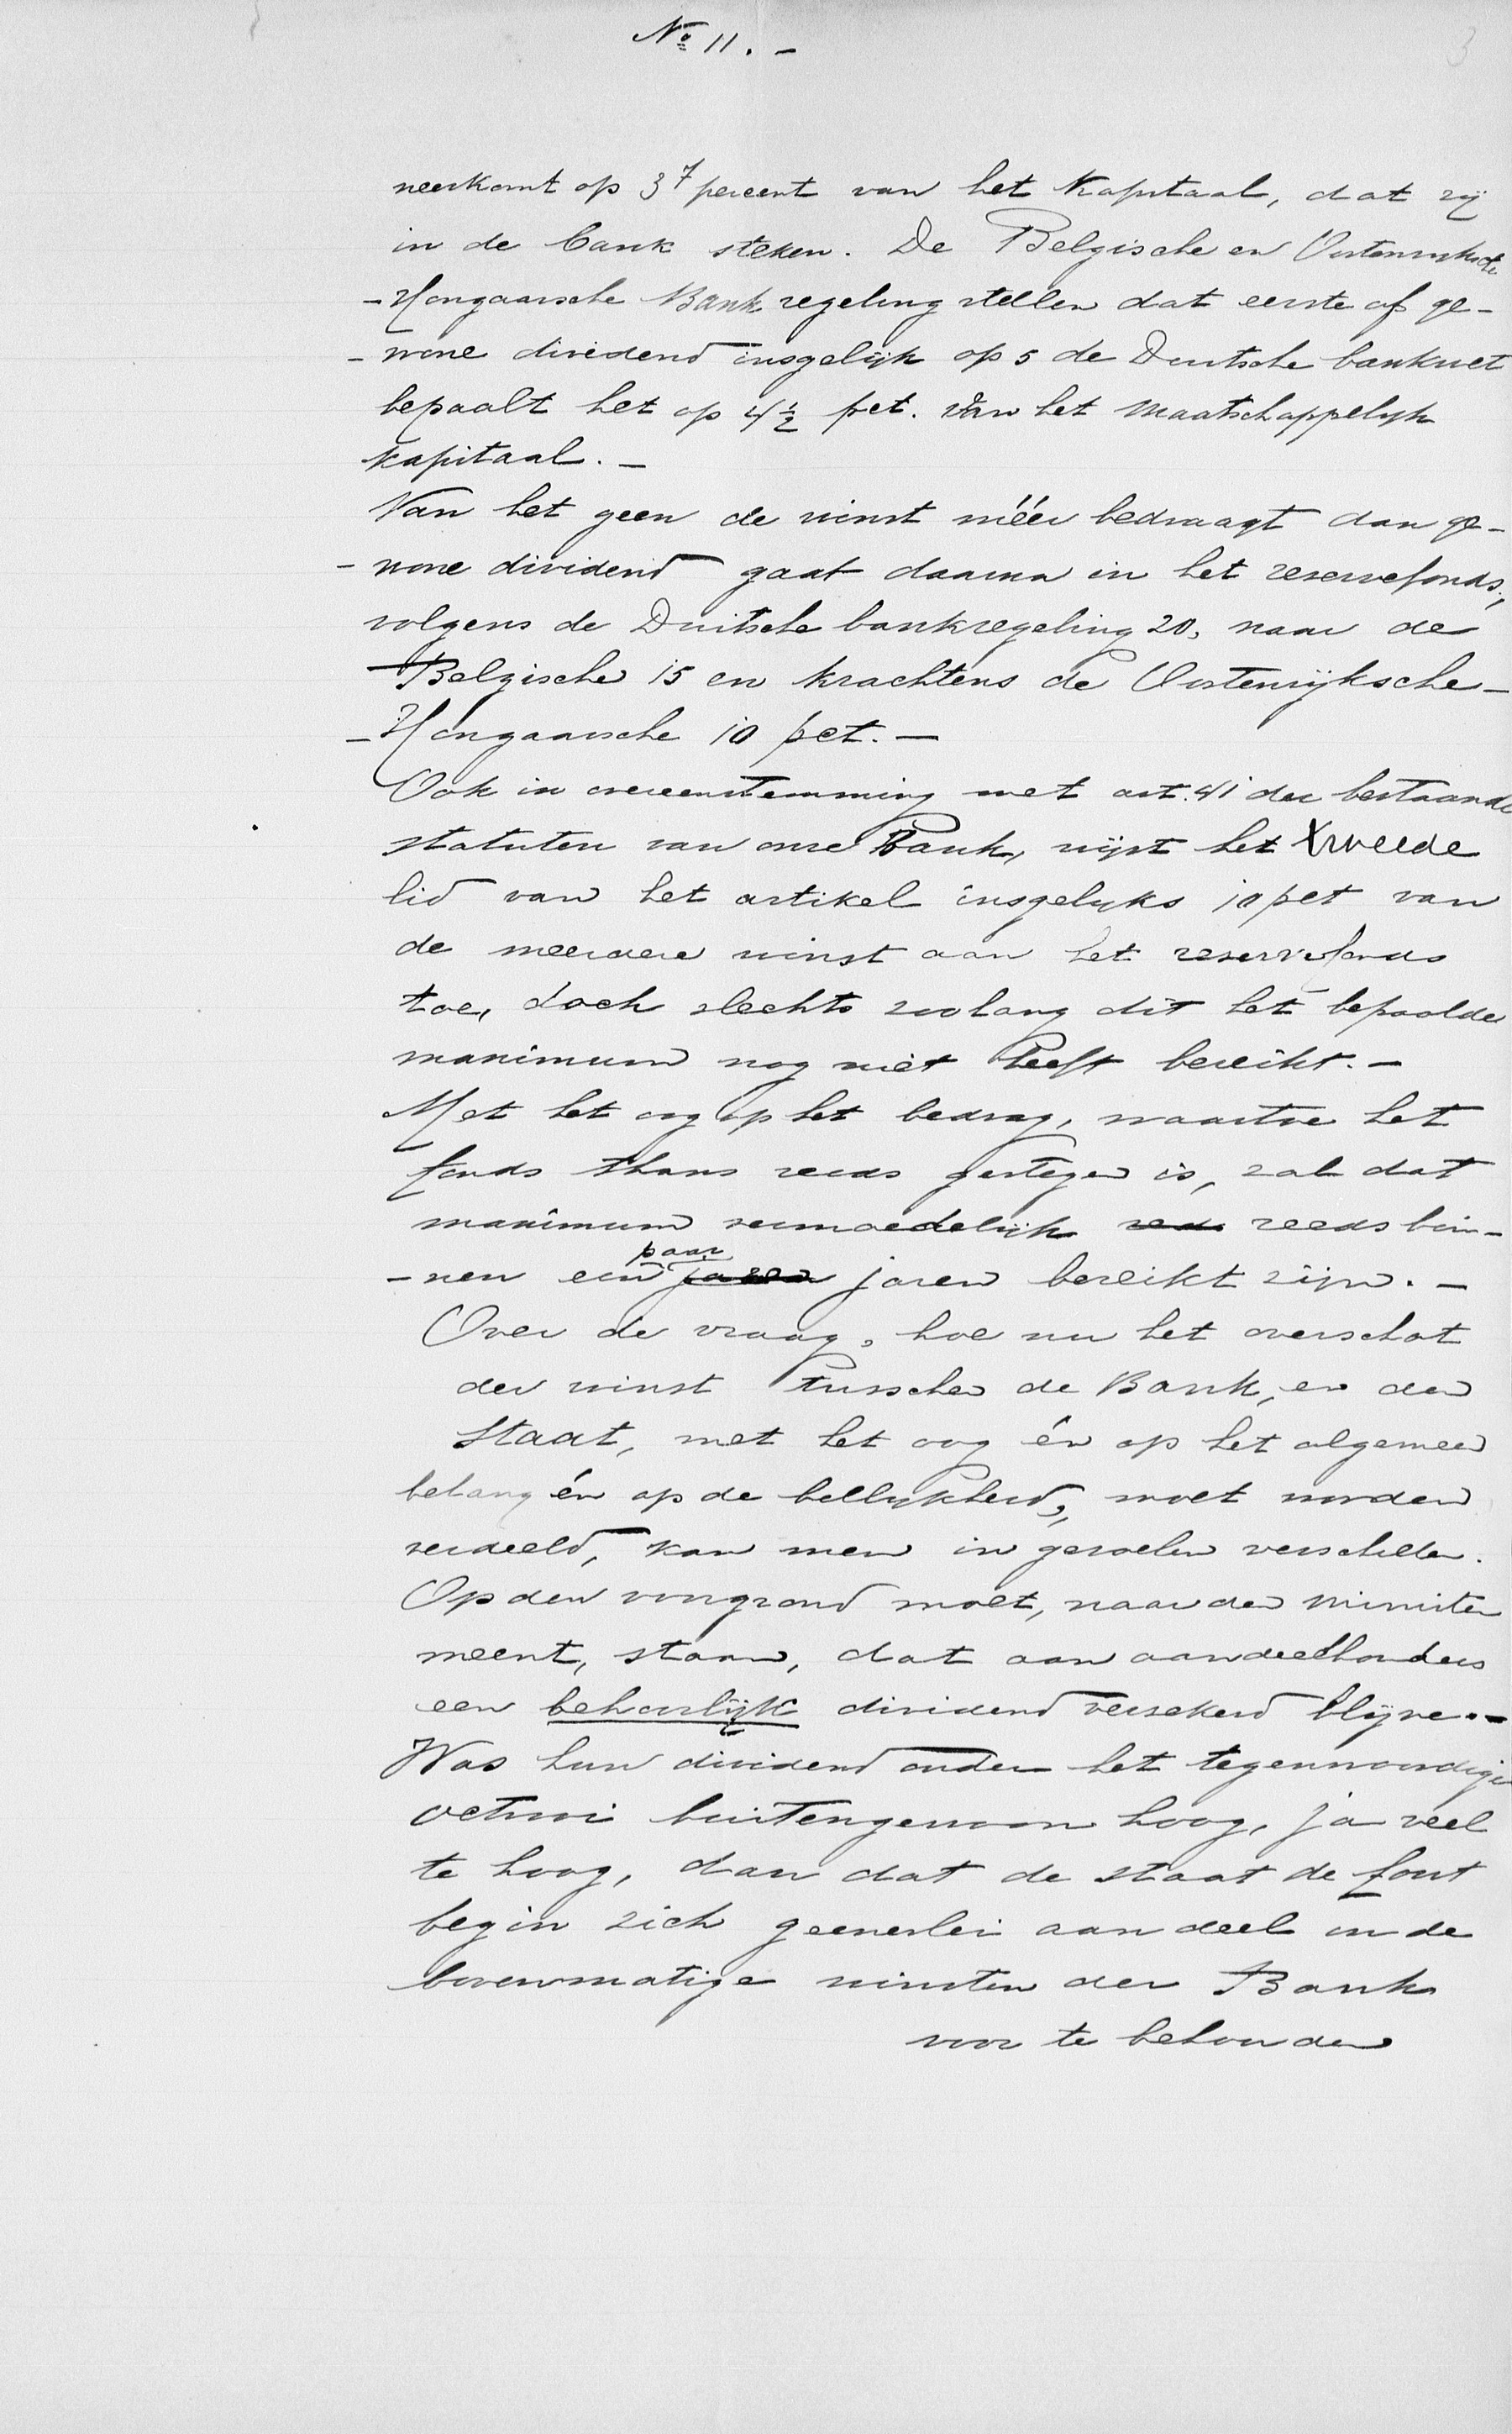 No 11. -
3
neerkomt op 3 7 percent van het Kapitaal, dat zij
in de bank steken. De Belgische en Oostenryksche
- Hongaarsche Bankregeling stellen dat eerste of ge-
- wone dividend insgelijk op 5 de Duitsche bankwet
bepaalt het op 4 1/2 pct. van het Maatschappelijk
kapitaal. -
Van het geen de winst méér bedraagt dan ge-
- wone dividend gaat daarna in het reservefonds,
volgens de Duitsche bankregeling 20, naar de
Belgische 15 en krachtens de Oostenrijksche -
- Hongaarsche 10 pct. -
Ook in overeenstemming met art. 41 der bestaande
statuten van onze Bank, wijst het tweede
lid van het artikel insgelyks 10 pct van
de meerdere winst aan het reservefonds
toe, doch slechts zoolang dit het bepaalde
maximum nog niet heeft bereikt. -
Met het oog op het bedrag, waartoe het
fonds thans reeds gestegen is, zal dat
maximum vermoedelijk reeds reeds bin-
- nen een paar jaren jaren bereikt zijn. -
Over de vraag, hoe nu het overschot
der winst tusschen de Bank, en den
Staat, met het oog én op het algemeen
belang én op de billykheid, moet worden
verdeeld, kan men in gevoelen verschillen.
Op den voorgrond moet, naar den Minister
meent, staan, dat aan aandeelhouders
een behoorlijk dividend verzekerd blijve. -
Was hun dividend onder het tegenwoordige
octrooi buitengewoon hoog, ja veel
te hoog, dan dat de staat de fout
begin zich geenerlei aandeel in de
bovenmatige winsten der Bank
voor te behouden